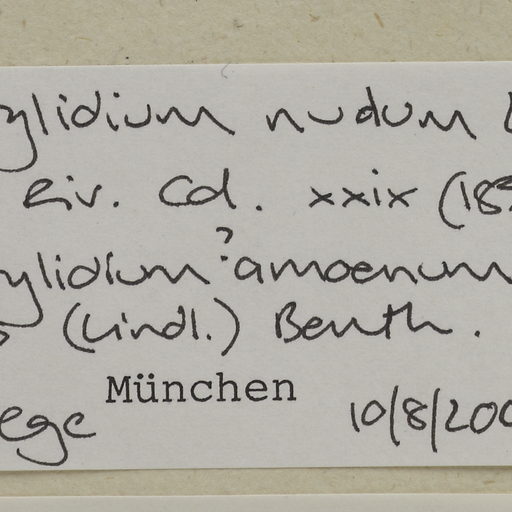 ylidium nudum
Riv. Cd. xxix (18
ylidium ?amoenum
(Lindl.) Benth.
München
ege 10/8/200